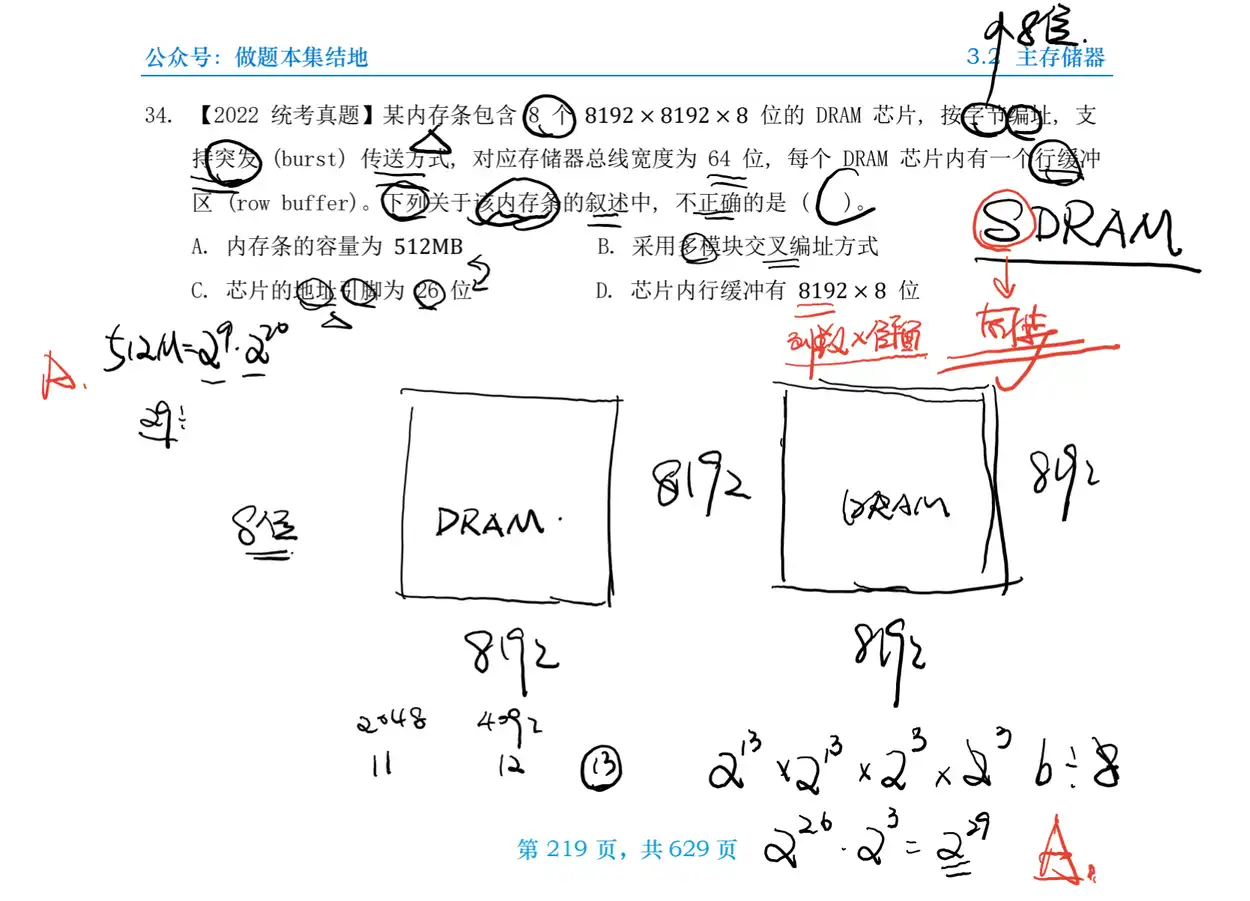 个8位.
公众号：做题本集结地
3.2 主存储器
34. 【2022 统考真题】某内存条包含 8 个 8192×8192×8 位的 DRAM 芯片，按字节编址，支
持突发（burst）传送方式，对应存储器总线宽度为 64 位，每个 DRAM 芯片内有一个行缓冲
区（row buffer）。下列关于该内存条的叙述中，不正确的是（ ）。
SDRAM
A. 内存条的容量为 512MB
B. 采用多模块交叉编址方式
C. 芯片的地址引脚为 26 位
D. 芯片内行缓冲有 8192×8 位
512M=2^9·2^20
列数×位
A.
29÷
8192
8192
8位
DRAM.
DRAM
8192
8192
2048
4092
11
12
13
2^13×2^13×2^3×2^3 b÷8
第 219 页，共 629 页
2^26·2^3=2^29
A.